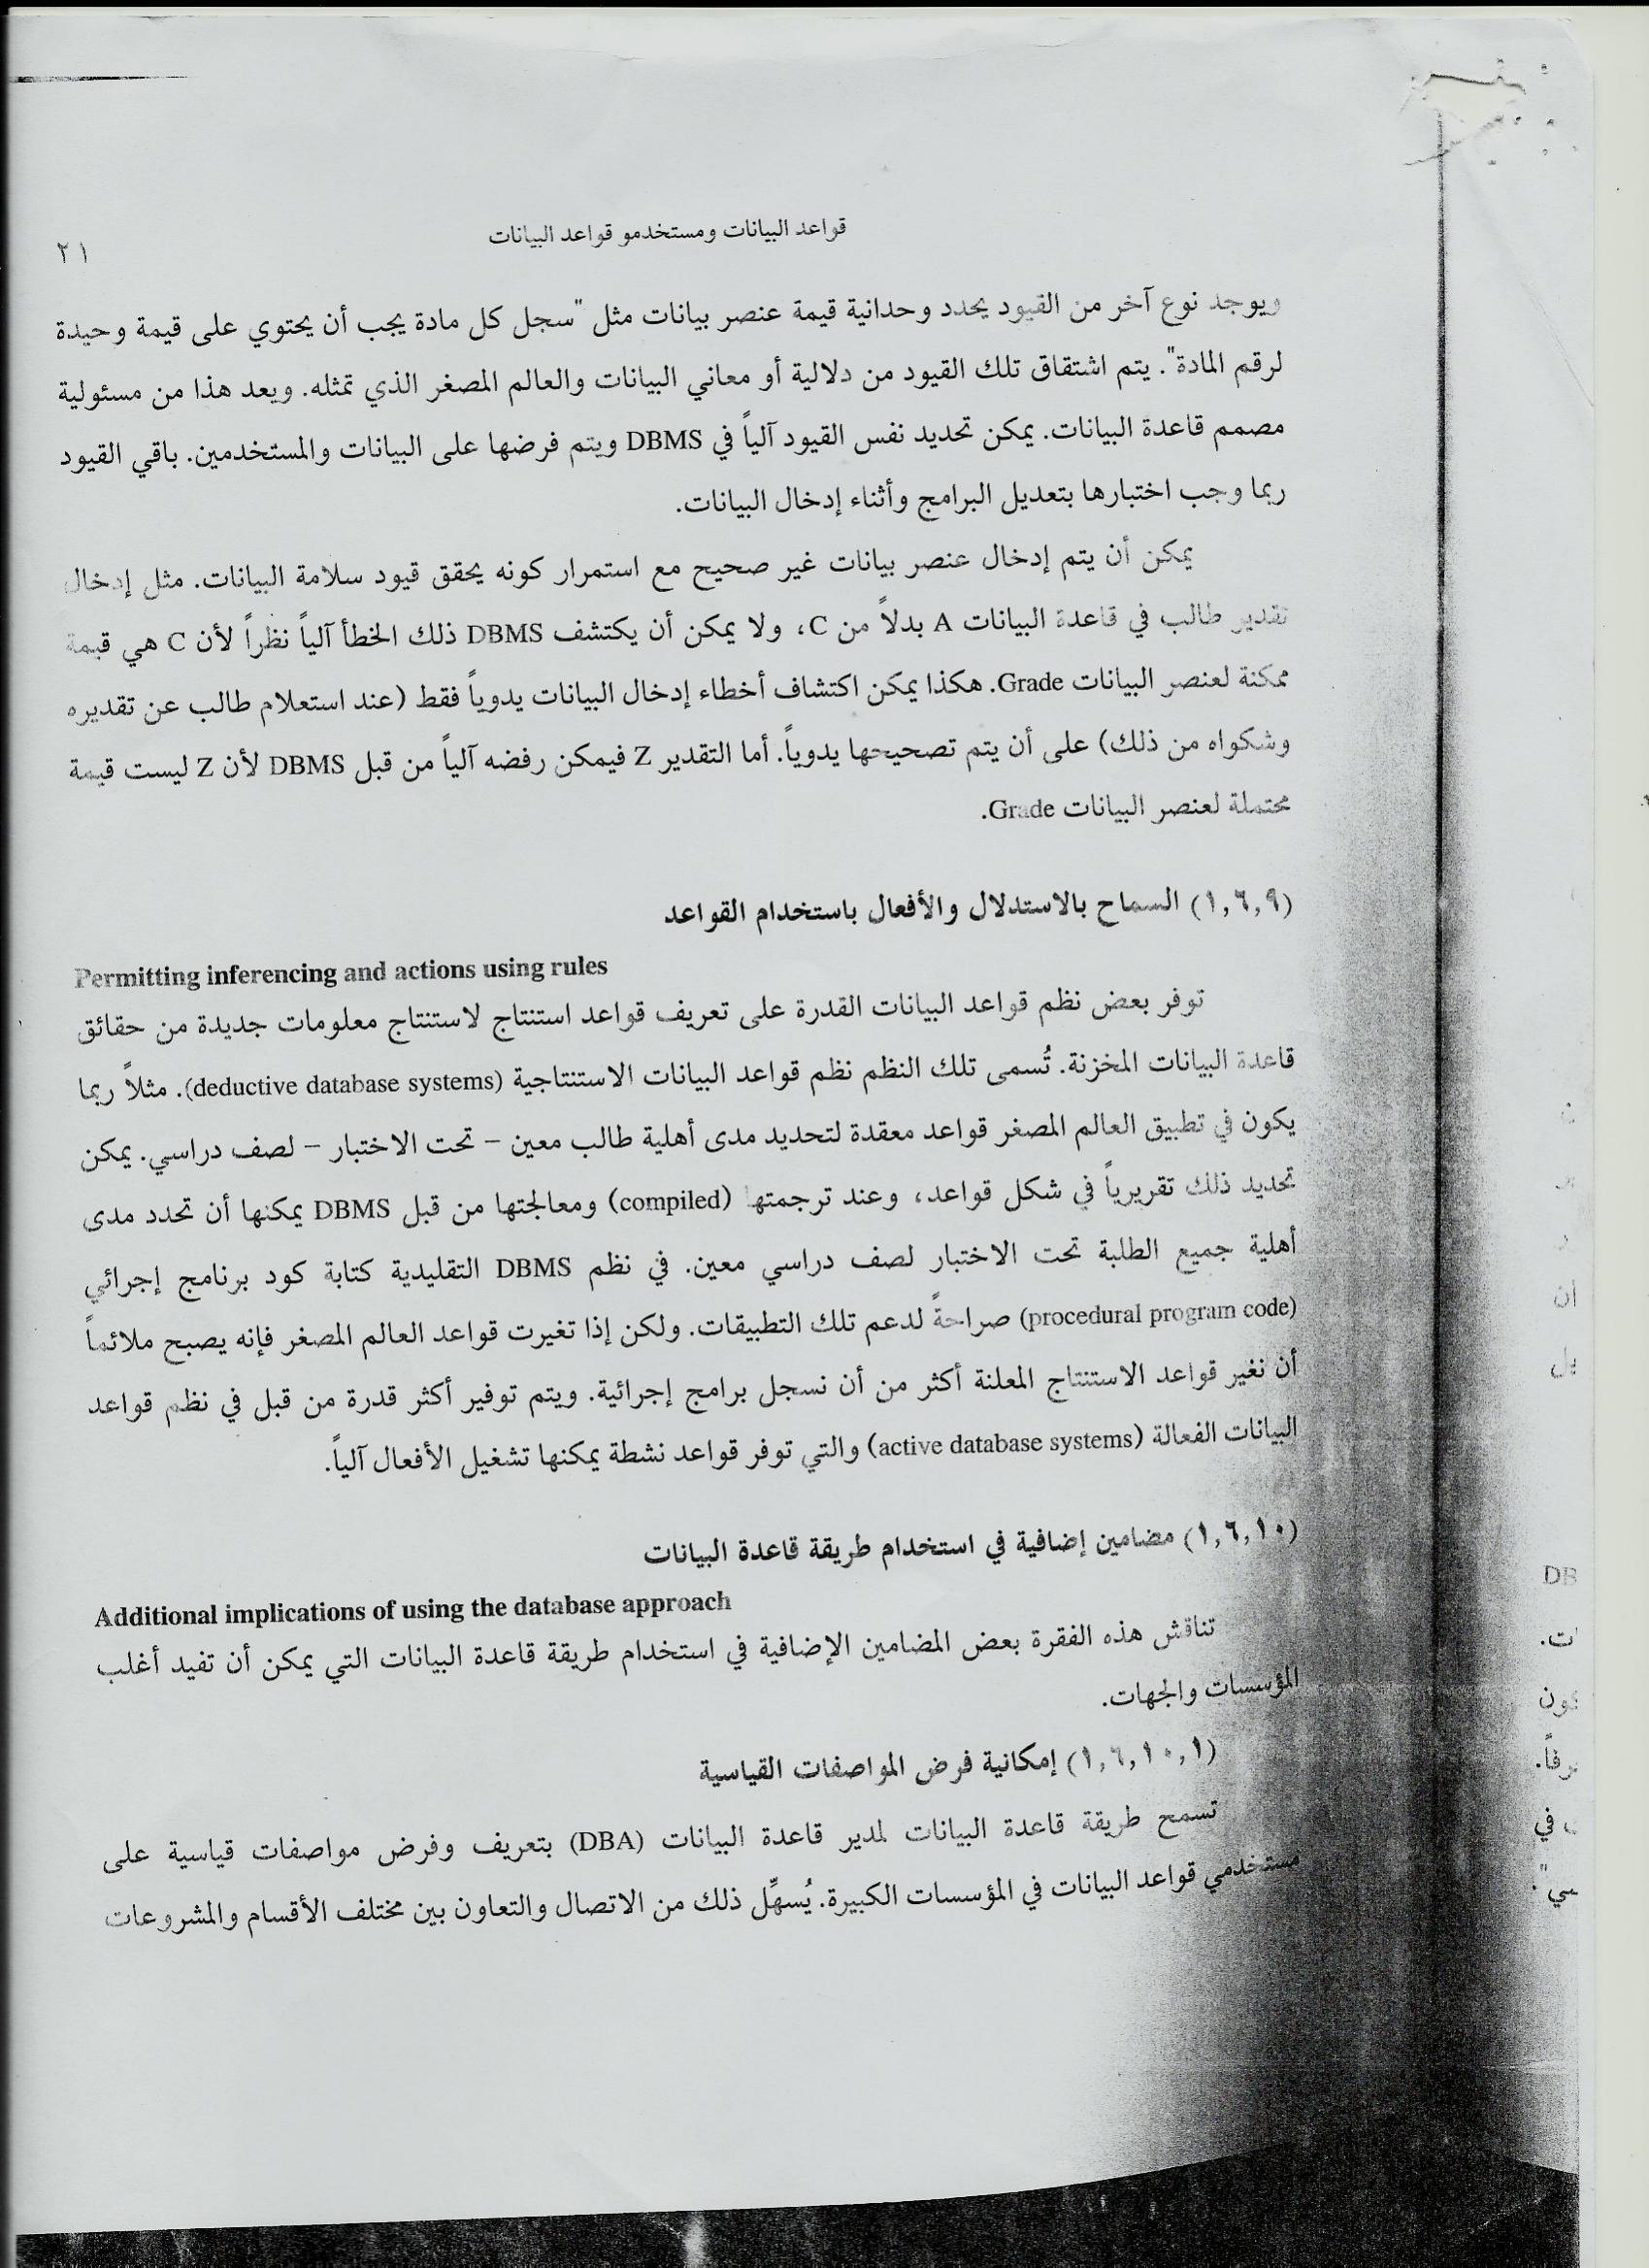 قواعد البيانات ومستخدمو قواعد البيانات
٢١
ويوجد نوع آخر من القيود يحدد وحدانية قيمة عنصر بيانات مثل "سجل كل مادة يجب أن يحتوي على قيمة وحيدة
لرقم المادة". يتم اشتقاق تلك القيود من دلالية أو معاني البيانات والعالم المصغر الذي تمثله. ويعد هذا من مسئولية
مصمم قاعدة البيانات. يمكن تحديد نفس القيود آلياً في DBMS ويتم فرضها على البيانات والمستخدمين. باقي القيود
ربما وجب اختبارها بتعديل البرامج وأثناء إدخال البيانات.
يمكن أن يتم إدخال عنصر بيانات غير صحيح مع استمرار كونه يحقق قيود سلامة البيانات. مثل إدخال
تقدير طالب في قاعدة البيانات A بدلاً من C، ولا يمكن أن يكتشف DBMS ذلك الخطأ آلياً نظراً لأن C هي قيمة
ممكنة لعنصر البيانات Grade. هكذا يمكن اكتشاف أخطاء إدخال البيانات يدوياً فقط (عند استعلام طالب عن تقديره
وشكواه من ذلك) على أن يتم تصحيحها يدوياً. أما التقدير Z فيمكن رفضه آلياً من قبل DBMS لأن Z ليست قيمة
محتملة لعنصر البيانات Grade.
(١,٦,٩) السماح بالاستدلال والأفعال باستخدام القواعد
Permitting inferencing and actions using rules
توفر بعض نظم قواعد البيانات القدرة على تعريف قواعد استنتاج لاستنتاج معلومات جديدة من حقائق
قاعدة البيانات المخزنة. تُسمى تلك النظم نظم قواعد البيانات الاستنتاجية (deductive database systems). مثلاً ربما
يكون في تطبيق العالم المصغر قواعد معقدة لتحديد مدى أهلية طالب معين – تحت الاختبار – لصف دراسي. يمكن
تحديد ذلك تقريرياً في شكل قواعد، وعند ترجمتها (compiled) ومعالجتها من قبل DBMS يمكنها أن تحدد مدى
أهلية جميع الطلبة تحت الاختبار لصف دراسي معين. في نظم DBMS التقليدية كتابة كود برنامج إجرائي
(procedural program code) صراحةً لدعم تلك التطبيقات. ولكن إذا تغيرت قواعد العالم المصغر فإنه يصبح ملائماً
أن نغير قواعد الاستنتاج المعلنة أكثر من أن نسجل برامج إجرائية. ويتم توفير أكثر قدرة من قبل في نظم قواعد
البيانات الفعالة (active database systems) والتي توفر قواعد نشطة يمكنها تشغيل الأفعال آلياً.
(١,٦,١٠) مضامين إضافية في استخدام طريقة قاعدة البيانات
Additional implications of using the database approach
تناقش هذه الفقرة بعض المضامين الإضافية في استخدام طريقة قاعدة البيانات التي يمكن أن تفيد أغلب
المؤسسات والجهات.
(١,٦,١٠,١) إمكانية فرض المواصفات القياسية
تسمح طريقة قاعدة البيانات لمدير قاعدة البيانات (DBA) بتعريف وفرض مواصفات قياسية على
مستخدمي قواعد البيانات في المؤسسات الكبيرة. يُسهِّل ذلك من الاتصال والتعاون بين مختلف الأقسام والمشروعات